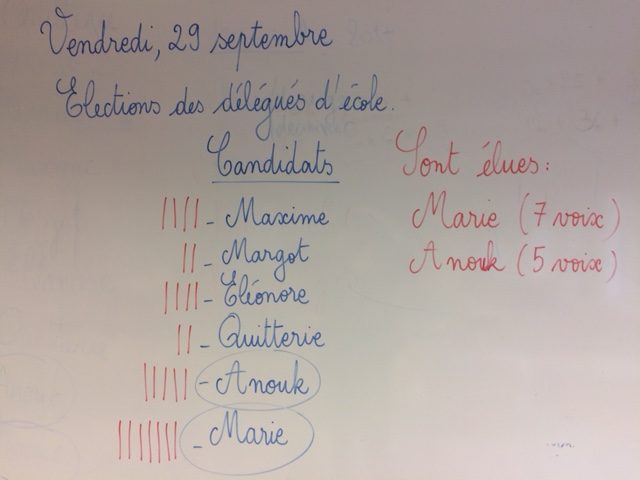 Vendredi, 29 septembre
Elections des délégués d'école.
Candidats
|||| - Maxime
|| - Margot
|||| - Eléonore
|| - Quitterie
||||| - Anouk
||||||| - Marie
Sont élues :
Marie (7 voix)
Anouk (5 voix)